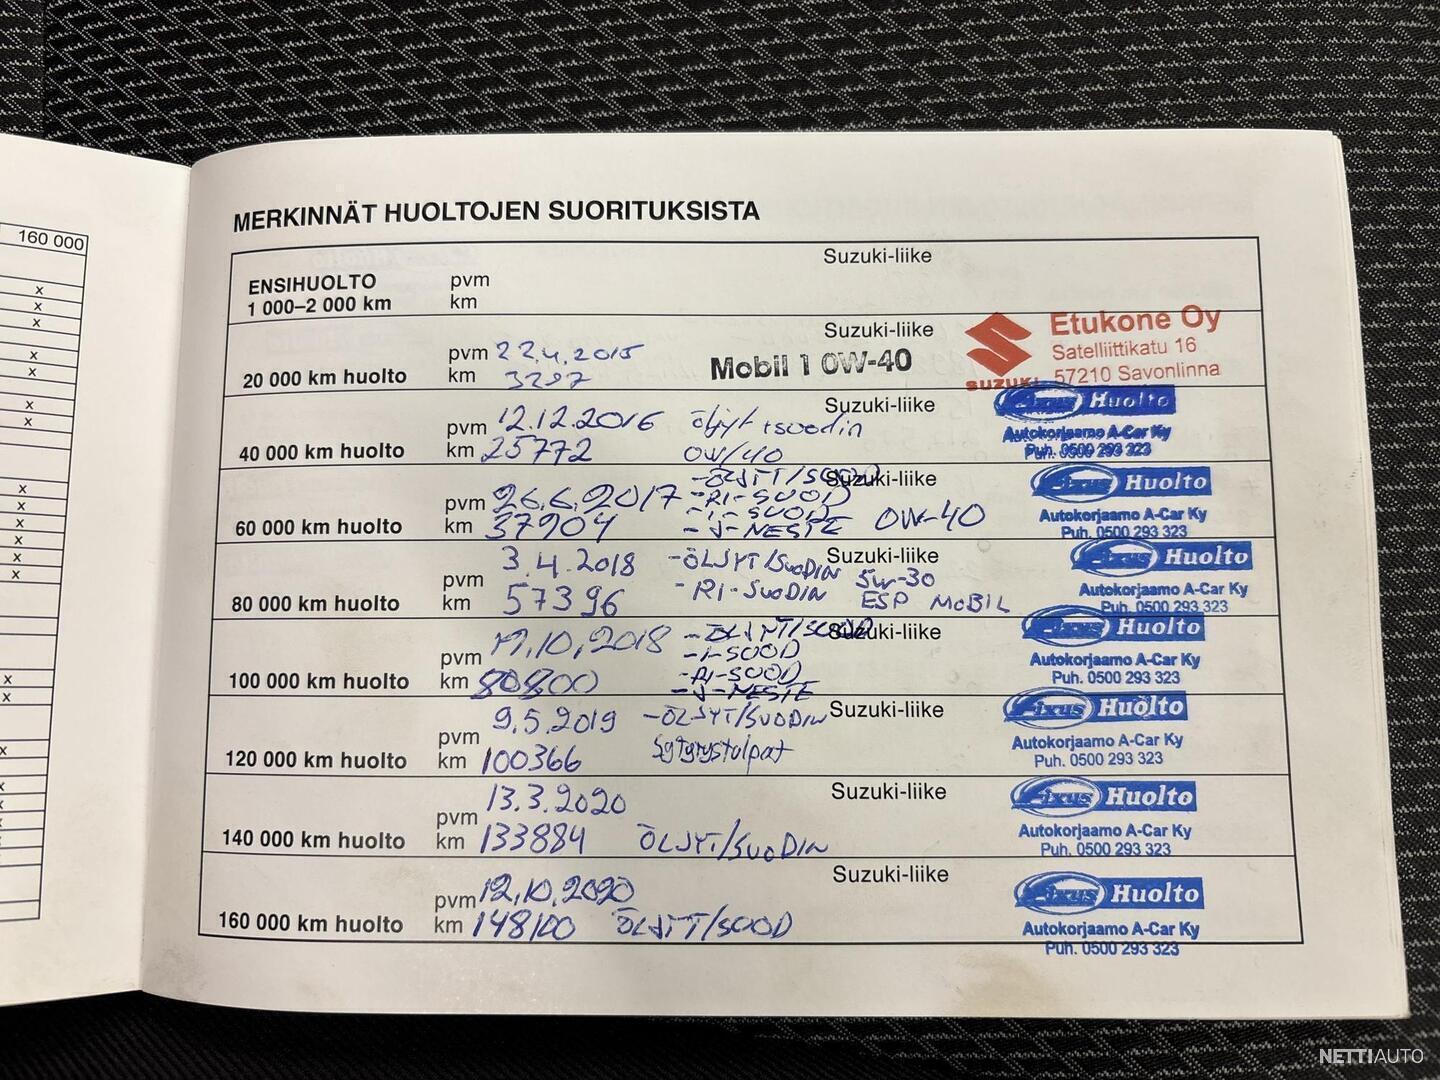 160 000
x
x
x
x
x
x
x
x
x
x
x
x
x
x
x
x
x
x
x
MERKINNÄT HUOLTOJEN SUORITUKSISTA
ENSIHUOLTO pvm Suzuki-liike
1 000–2 000 km km
Suzuki-liike Etukone Oy
pvm 22.4.2015 Mobil 1 0W-40 Satelliittikatu 16
20 000 km huolto km 3297 SUZUKI 57210 Savonlinna
Suzuki-liike Fixus Huolto
pvm 12.12.2016 öljyt +suodin Autokorjaamo A-Car Ky
40 000 km huolto km 25772 0W/40 Puh. 0500 293 323
-ÖLJYT/SUOD Suzuki-liike Fixus Huolto
pvm 26.6.2017 -RI-SUOD
-I-SUOD 0W-40 Autokorjaamo A-Car Ky
60 000 km huolto km 37904 -J-NESTE Puh. 0500 293 323
3.4.2018 -ÖLJYT/SUODIN Suzuki-liike Fixus Huolto
pvm -RI-SUODIN 5W-30 Autokorjaamo A-Car Ky
80 000 km huolto km 57396 ESP MOBIL Puh. 0500 293 323
10.2018 -ÖLJYT/SUOD Suzuki-liike Fixus Huolto
pvm -I-SUOD Autokorjaamo A-Car Ky
100 000 km huolto km 80800 -RI-SUOD Puh. 0500 293 323
-J-NESTE
9.5.2019 -ÖLJYT/SUODIN Suzuki-liike Fixus Huolto
pvm Sytytystulpat Autokorjaamo A-Car Ky
120 000 km huolto km 100366 Puh. 0500 293 323
13.3.2020 Suzuki-liike Fixus Huolto
pvm Autokorjaamo A-Car Ky
140 000 km huolto km 133884 ÖLJYT/SUODIN Puh. 0500 293 323
Suzuki-liike Fixus Huolto
pvm 12.10.2020 Autokorjaamo A-Car Ky
160 000 km huolto km 148100 ÖLJYT/SUOD Puh. 0500 293 323
NETTIAUTO